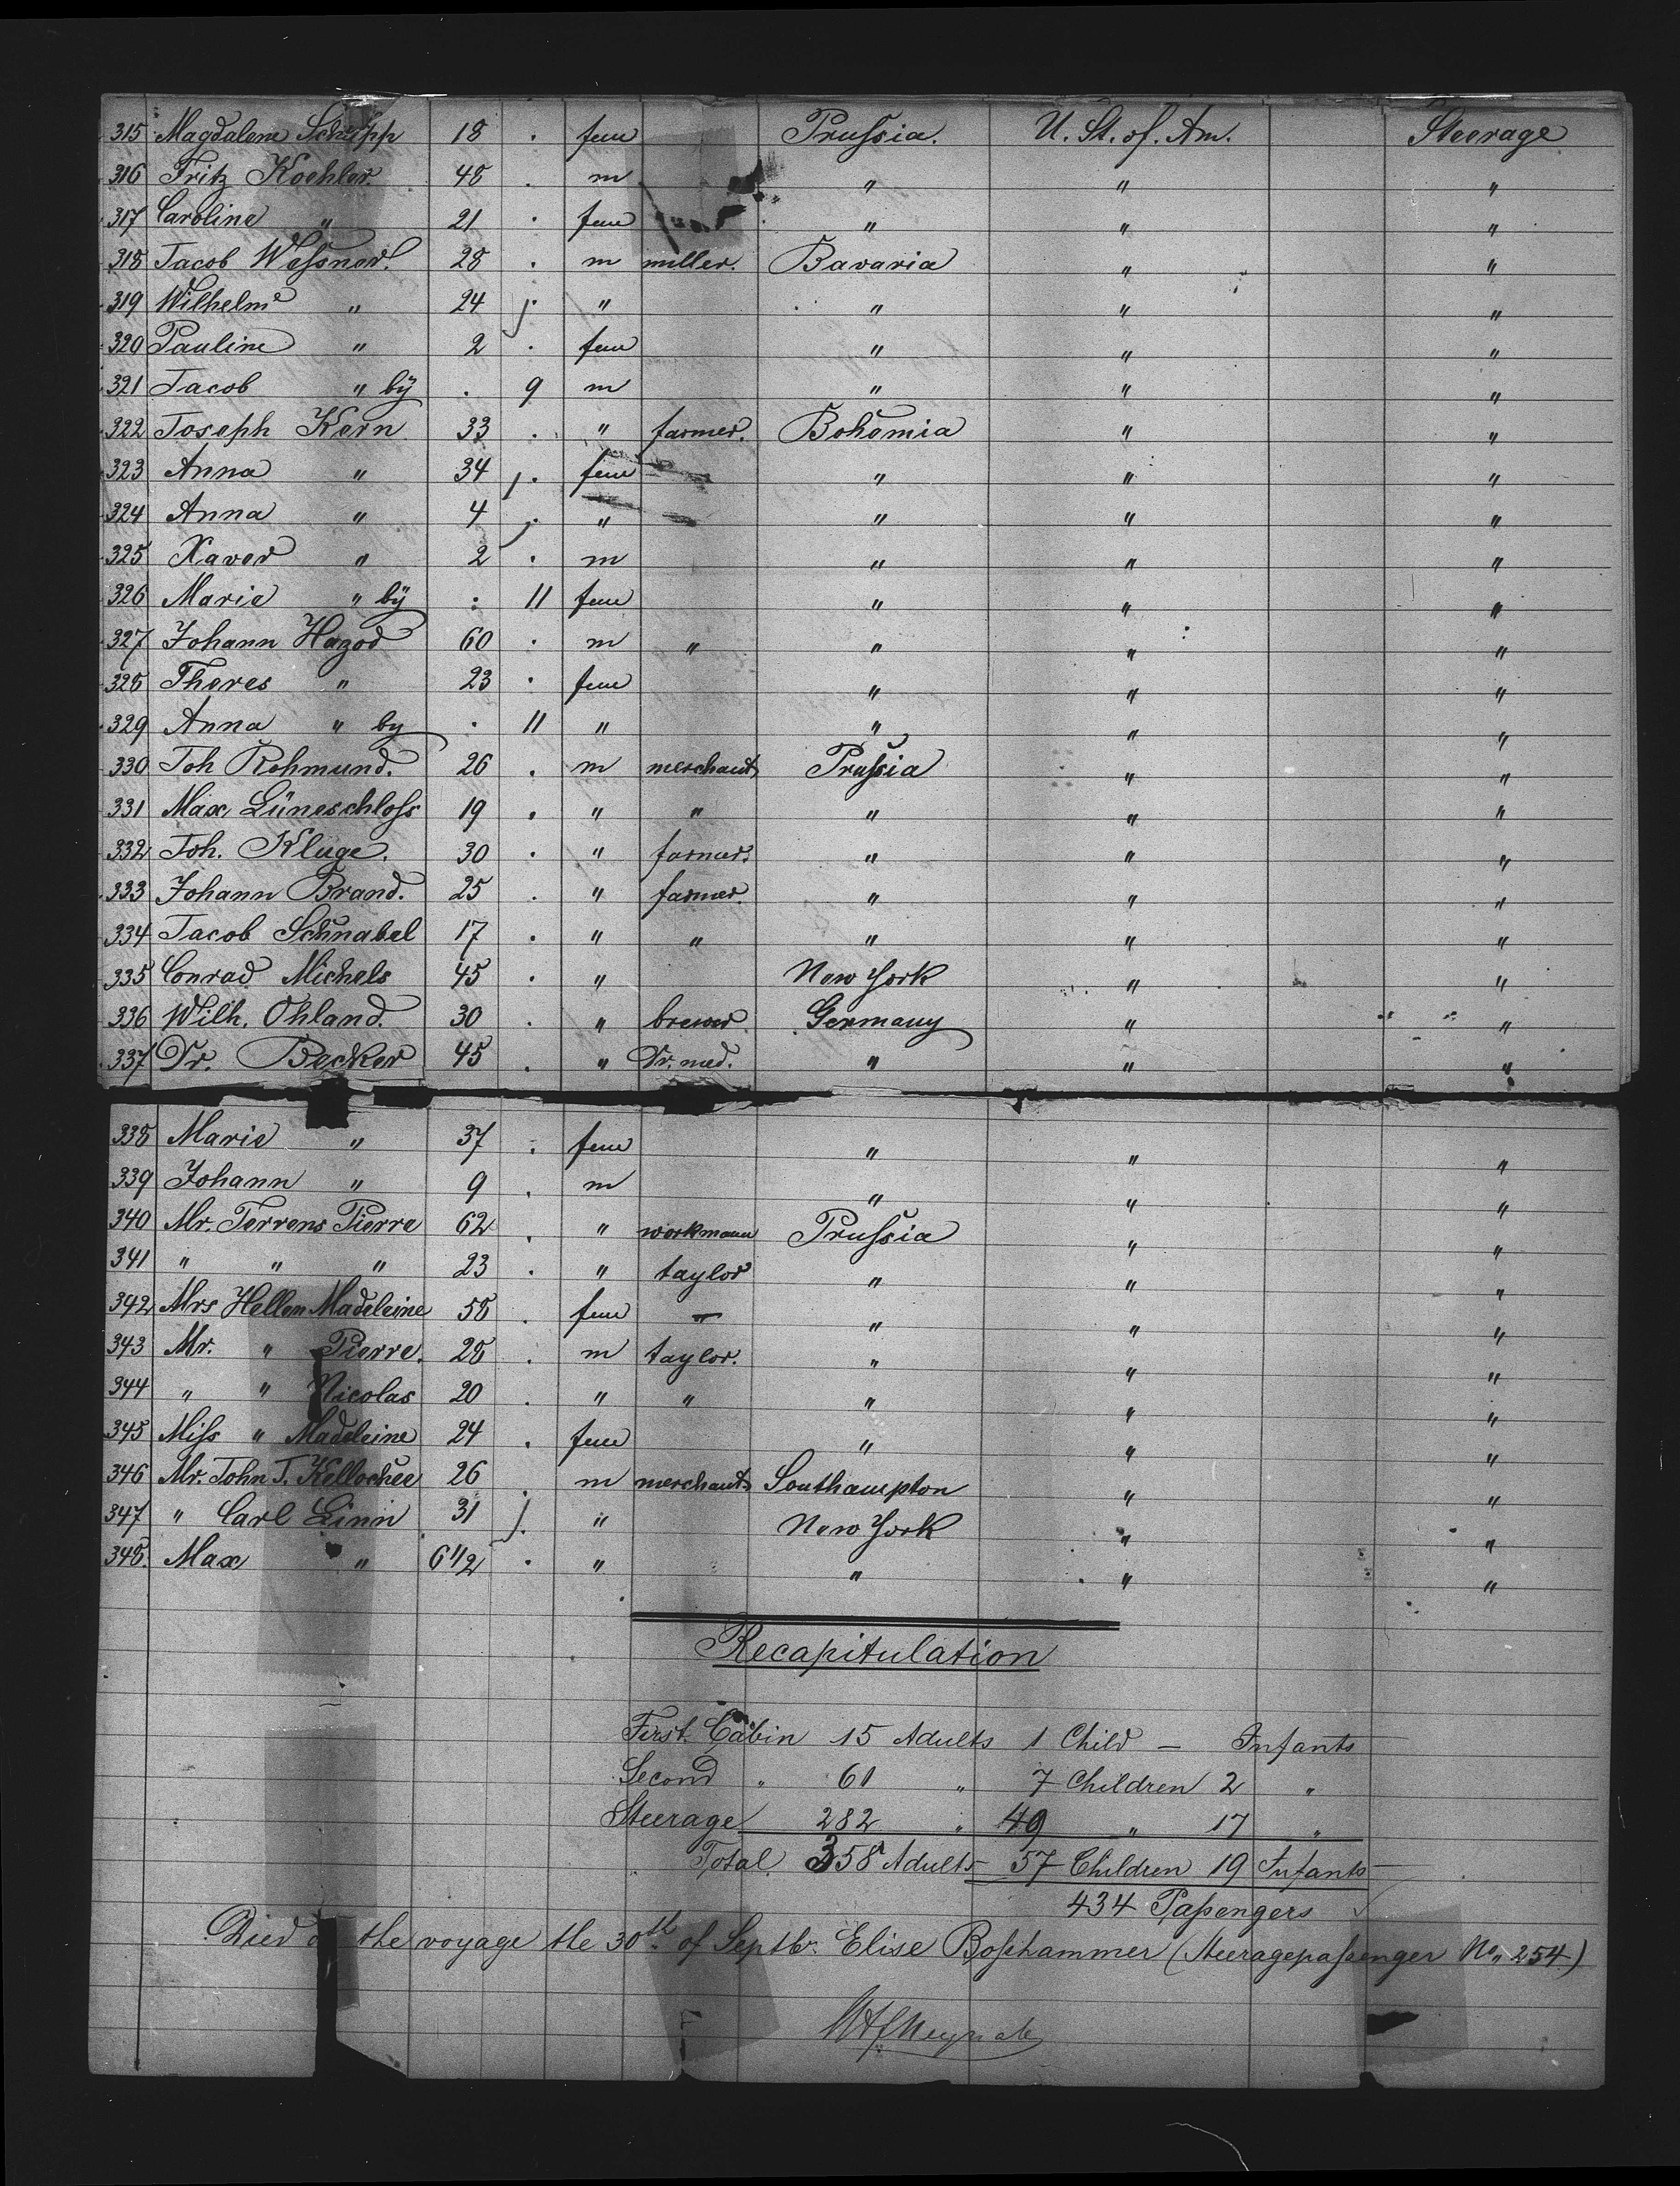 315 Magdalene Schupp 18 . fem Prussia. U. St. of. Am. Steerage
316 Fritz Koehler. 48 . m " " "
317 Caroline " 21 . fem " " "
318 Jacob Wessner. 28 . m miller. Bavaria " "
319 Wilhelme " 24 . " " " "
320 Pauline " 2 . fem " " "
321 Jacob " by . 9 m " " "
322 Joseph Kern 33 . " farmer. Bohemia " "
323 Anna " 34 . fem " " "
324 Anna " 4 . " " " "
325 Xaver " 2 . m " " "
326 Marie " by . 11 fem " " "
327 Johann Hazod 60 . m " " " "
328 Theres " 23 . fem " " "
329 Anna " by . 11 " " " "
330 Joh Rehmund. 26 . m merchant Prussia " "
331 Max Lüneschloss 19 . " " " " "
332 Joh. Kluge. 30 . " farmer. " " "
333 Johann Brand. 25 . " farmer. " " "
334 Jacob Schnabel 17 . " " " " "
335 Conrad Michels 45 . " New York " "
336 Wilh. Ohland. 30 . " brewer Germany " "
337 Dr. Becker 45 . " Dr. med. " " "
338 Marie " 37 . fem " " "
339 Johann " 9 . m " " "
340 Mr. Terrens Pierre 62 . " workmann Prussia " "
341 " " " 23 . " taylor " " "
342 Mrs Hellen Madeleine 58 . fem — " " "
343 Mr. " Pierre. 28 . m taylor. " " "
344 " " Nicolas 20 . " " " " "
345 Miss " Madeleine 24 . fem " " "
346 Mr. John T. Kellochee 26 m merchant Southampton " "
347 " Carl Linn 31 . " New York " "
348. Max " 6 1/2 . " " " "
Recapitulation
First Cabin 15 Adults 1 Child — Infants
Second " 61 " 7 Children 2 "
Steerage 282 " 49 " 17 "
Total. 358 Adults 57 Children 19 Infants
434 Passengers
Died the voyage the 30th of Septbr. Elise Bosshammer (Steeragepassenger No. 254)